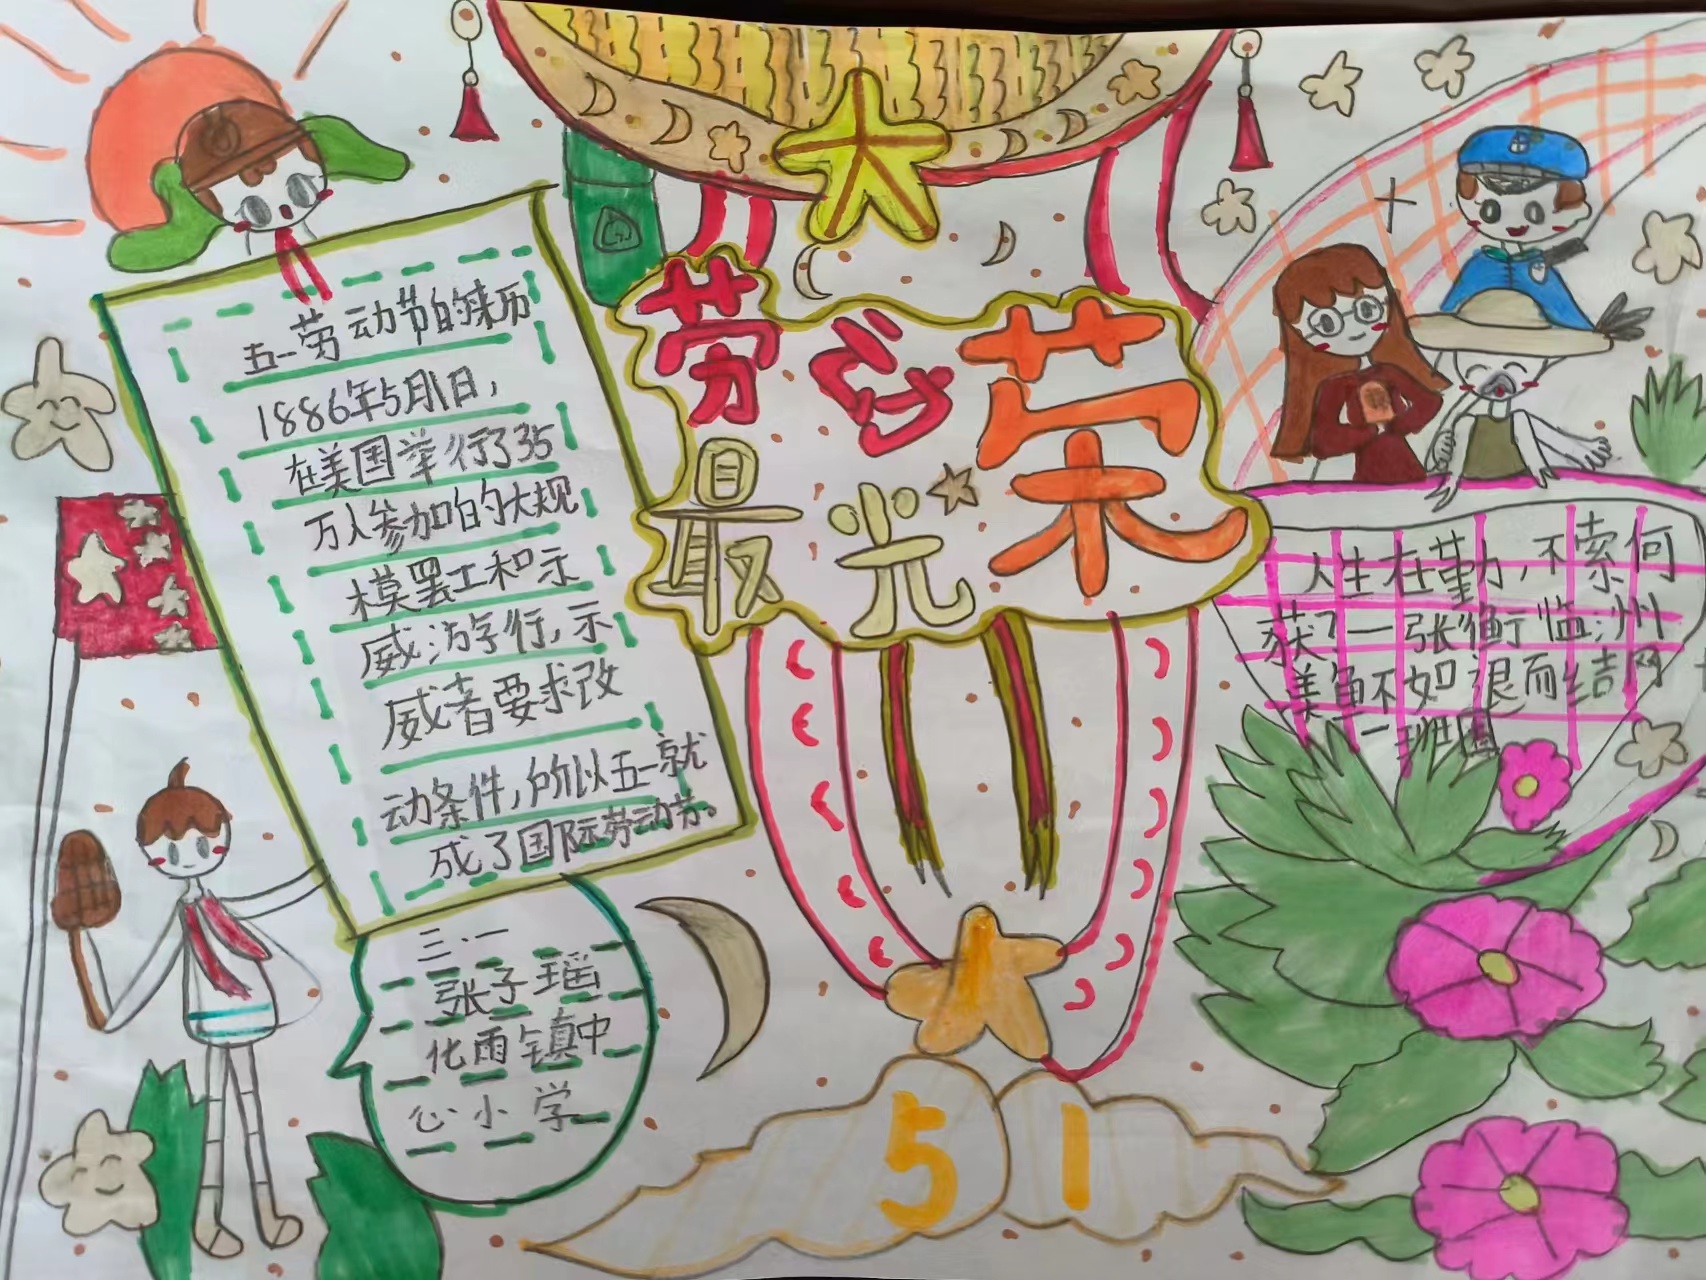 劳动
最光荣
五一劳动节的来历
1886年5月1日,
在美国举行了35
万人参加的大规
模罢工和示
威游行,示
威者要求改
动条件,所以五一就
成了国际劳动节。
三·一
张子瑶
化雨镇中
心小学
人生在勤,不索何
获?一张衡 临渊
美鱼不如退而结网
一班固
51